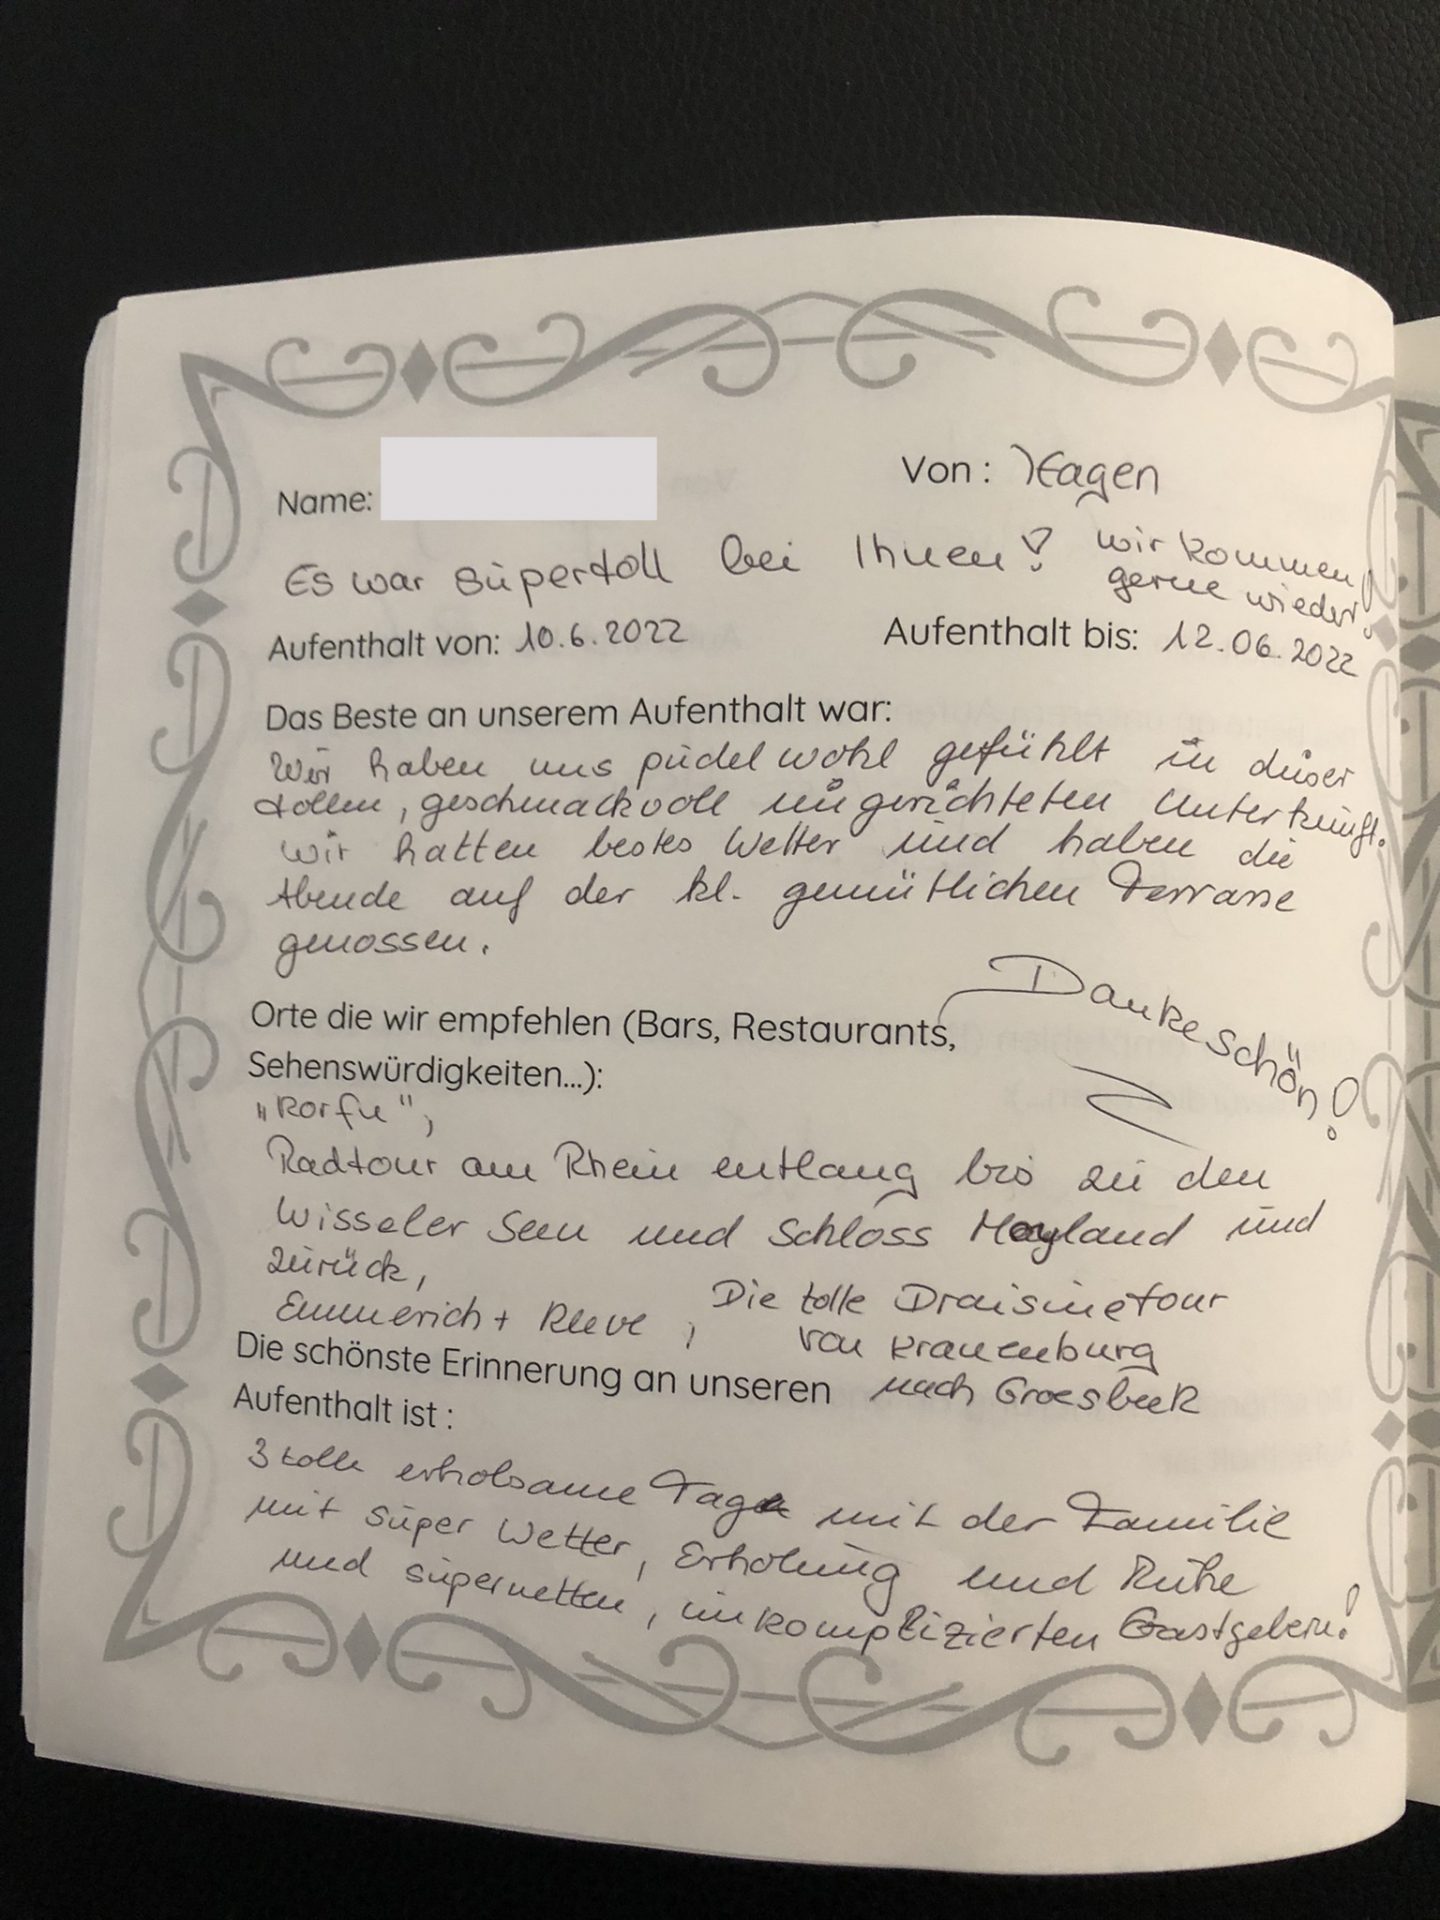 Name:
Von: Hagen
Es war supertoll bei Ihnen! wir kommen
gerne wieder!
Aufenthalt von: 10.6.2022
Aufenthalt bis: 12.06.2022
Das Beste an unserem Aufenthalt war:
Wir haben uns pudelwohl gefühlt in dieser
tollen, geschmackvoll eingerichteten Unterkunft.
Wir hatten bestes Wetter und haben die
Abende auf der kl. gemütlichen Terrasse
genossen.
Dankeschön!
Orte die wir empfehlen (Bars, Restaurants,
Sehenswürdigkeiten...):
„Korfu",
Radtour am Rhein entlang bis zu den
Wisseler Seen und Schloss Moyland und
zurück,
Emmerich + Kleve,
Die tolle Draisinetour
von Kranenburg
nach Groesbeek
Die schönste Erinnerung an unseren
Aufenthalt ist :
3 tolle erholsame Tage mit der Familie
mit super Wetter, Erholung und Ruhe
und supernetten, unkomplizierten Gastgebern!